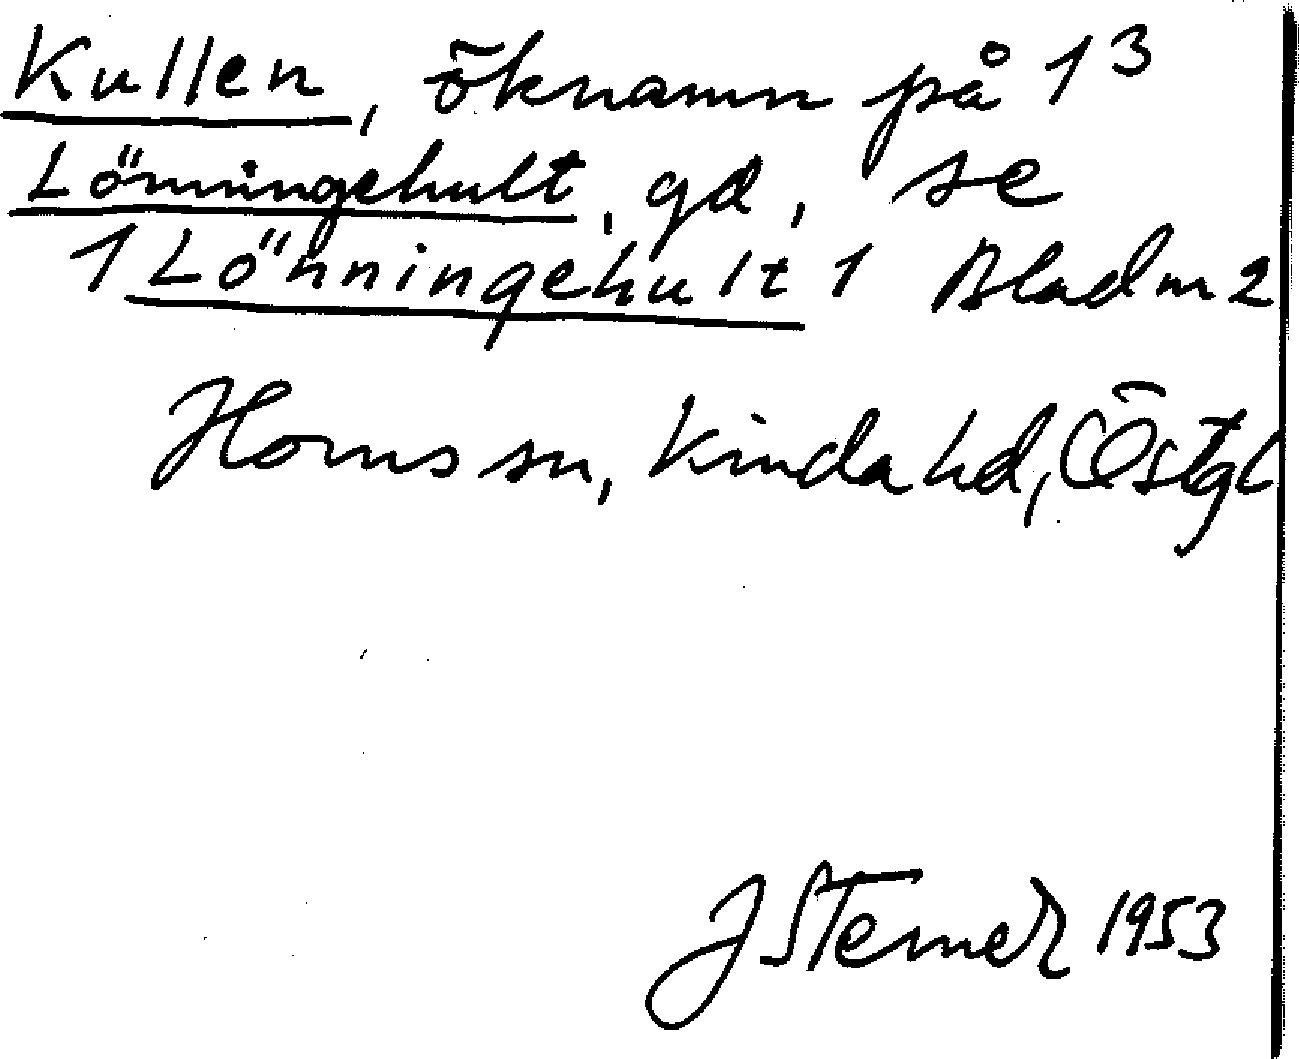 Kullen, öknamn på 1³
Lönningehult, gd, se
1 Lönningehult 1 Blad m 2
Horns sn, Kinda hd, Östgl
J Sterner 1953